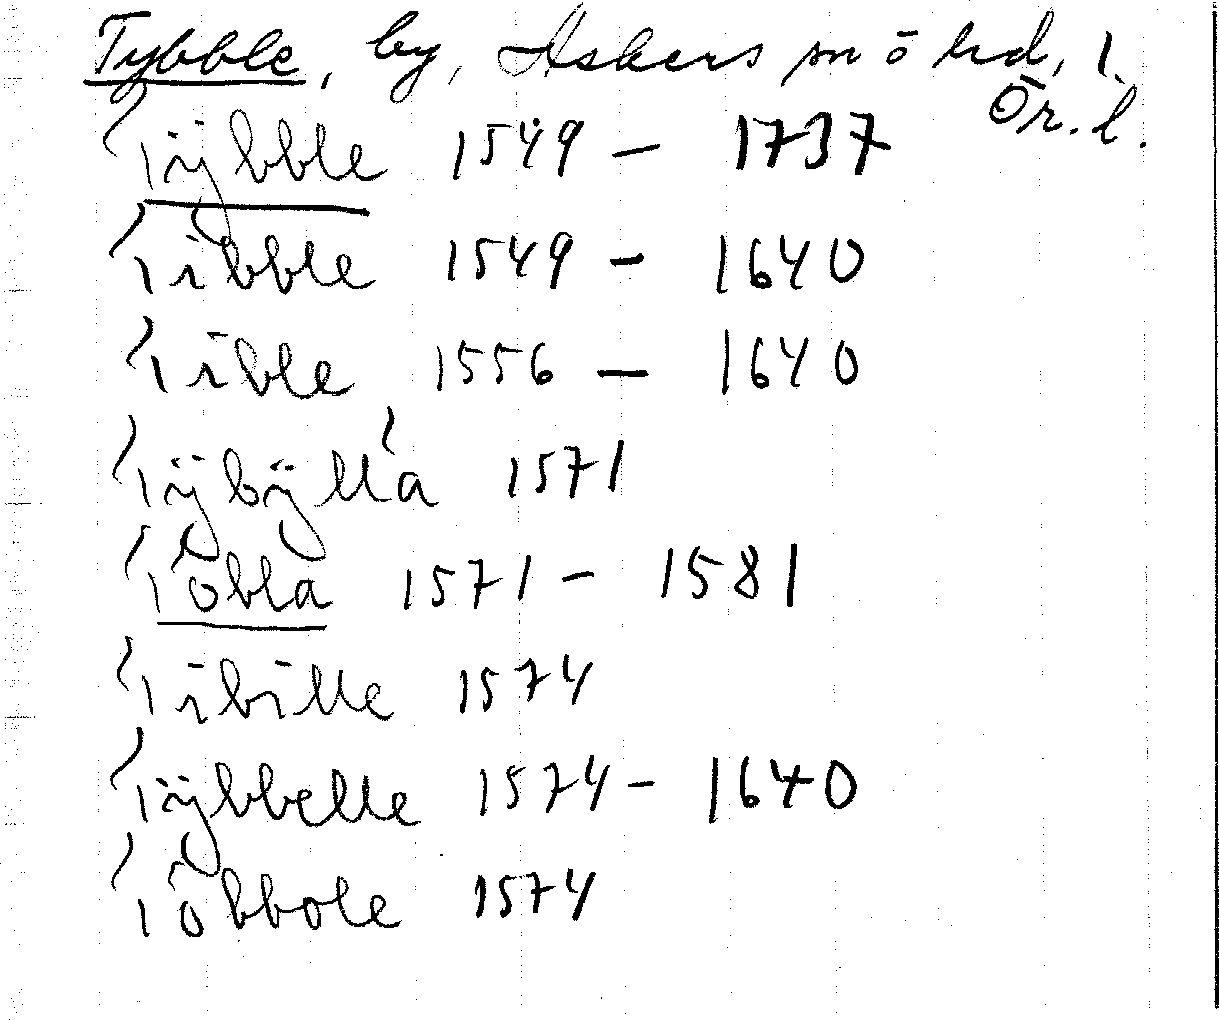 Tybble, by, Askers sn o hd, 1.
Ör. l.
Tÿbble 1549 — 1737
Tibble 1549 — 1640
Tible 1556 — 1640
Tÿbÿlla 1571
Töbla 1571 — 1581
Tibille 1574
Tÿbbelle 1574 — 1640
Többole 1574